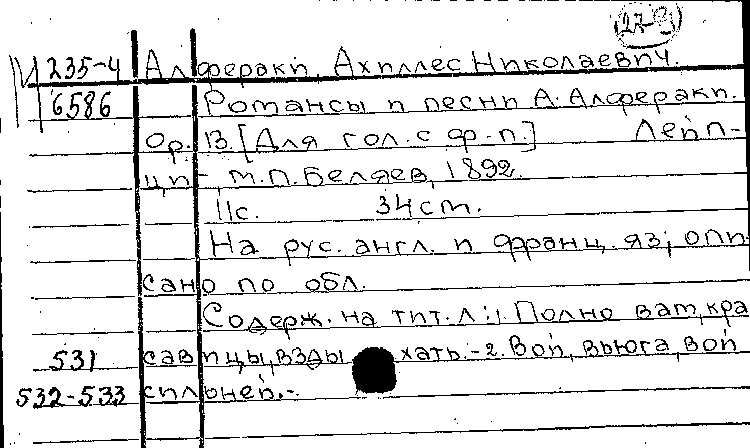 27-9
И 235-4 Алфераки, Ахиллес Николаевич.
6586 Романсы и песни А. Алфераки.
Op. 13. [Для гол. с ф-п.] Лейп-
циг, М.П. Беляев, 1892.
11с. 34 cm.
На рус. англ. и франц. яз; опи
сано по обл.
Содерж. на тит. л: 1. Полно вам, кра
531 савицы, взды хать. - 2. Вой, вьюга, вой
532-533 сильней. -